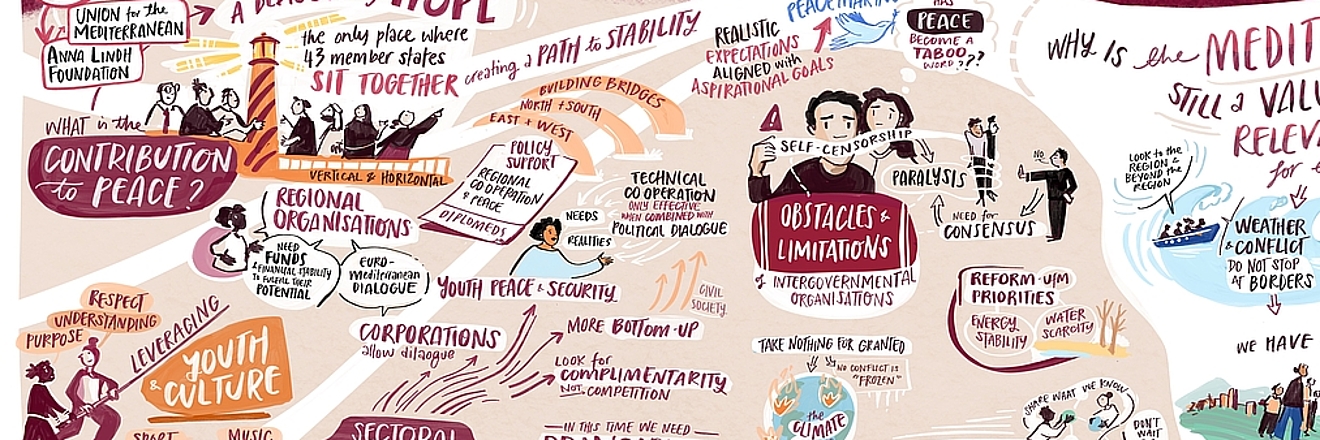 UNION for the
MEDITERRANEAN
ANNA LINDH
FOUNDATION
HOPE
the only place where
43 member states
SIT TOGETHER
creating a PATH to STABILITY
WHAT is the
CONTRIBUTION
to PEACE?
VERTICAL & HORIZONTAL
BUILDING BRIDGES
NORTH + SOUTH
EAST + WEST
POLICY
SUPPORT
REGIONAL
CO OPERATION
& PEACE
DIPLOMEDS
REGIONAL
ORGANISATIONS
NEED
FUNDS
& FINANCIAL STABILITY
TO FULFILL THEIR
POTENTIAL
EURO-
Mediterranean
DIALOGUE
NEEDS
REALITIES
TECHNICAL
CO OPERATION
ONLY EFFECTIVE
WHEN COMBINED WITH
POLITICAL DIALOGUE
YOUTH PEACE & SECURITY
CIVIL
SOCIETY
RESPECT
UNDERSTANDING
PURPOSE
LEVERAGING
YOUTH
& CULTURE
SPORT
MUSIC
CORPORATIONS
allow dilaogue
MORE BOTTOM-UP
LOOK for
COMPLIMENTARITY
NOT COMPETITION
SECTORAL
IN THIS TIME WE NEED
PEACEMAKING
REALISTIC
EXPECTATIONS
ALIGNED with
ASPIRATIONAL GOALS
HAS
PEACE
BECOME A
TABOO
WORD???
SELF-CENSORSHIP
OBSTACLES &
LIMITATIONS
of INTERGOVERNMENTAL
ORGANISATIONS
PARALYSIS
NEED for
CONSENSUS
NO
REFORM UfM
PRIORITIES
ENERGY
STABILITY
WATER
SCARCITY
TAKE NOTHING FOR GRANTED
NO CONFLICT IS
"FROZEN"
the
CLIMATE
SHARE WHAT WE KNOW
DON'T
WAIT
WHY IS the MEDIT
STILL a VALU
RELEV
for
LOOK to the
REGION &
BEYOND the
REGION
WEATHER
& CONFLICT
DO NOT STOP
AT BORDERS
WE HAVE